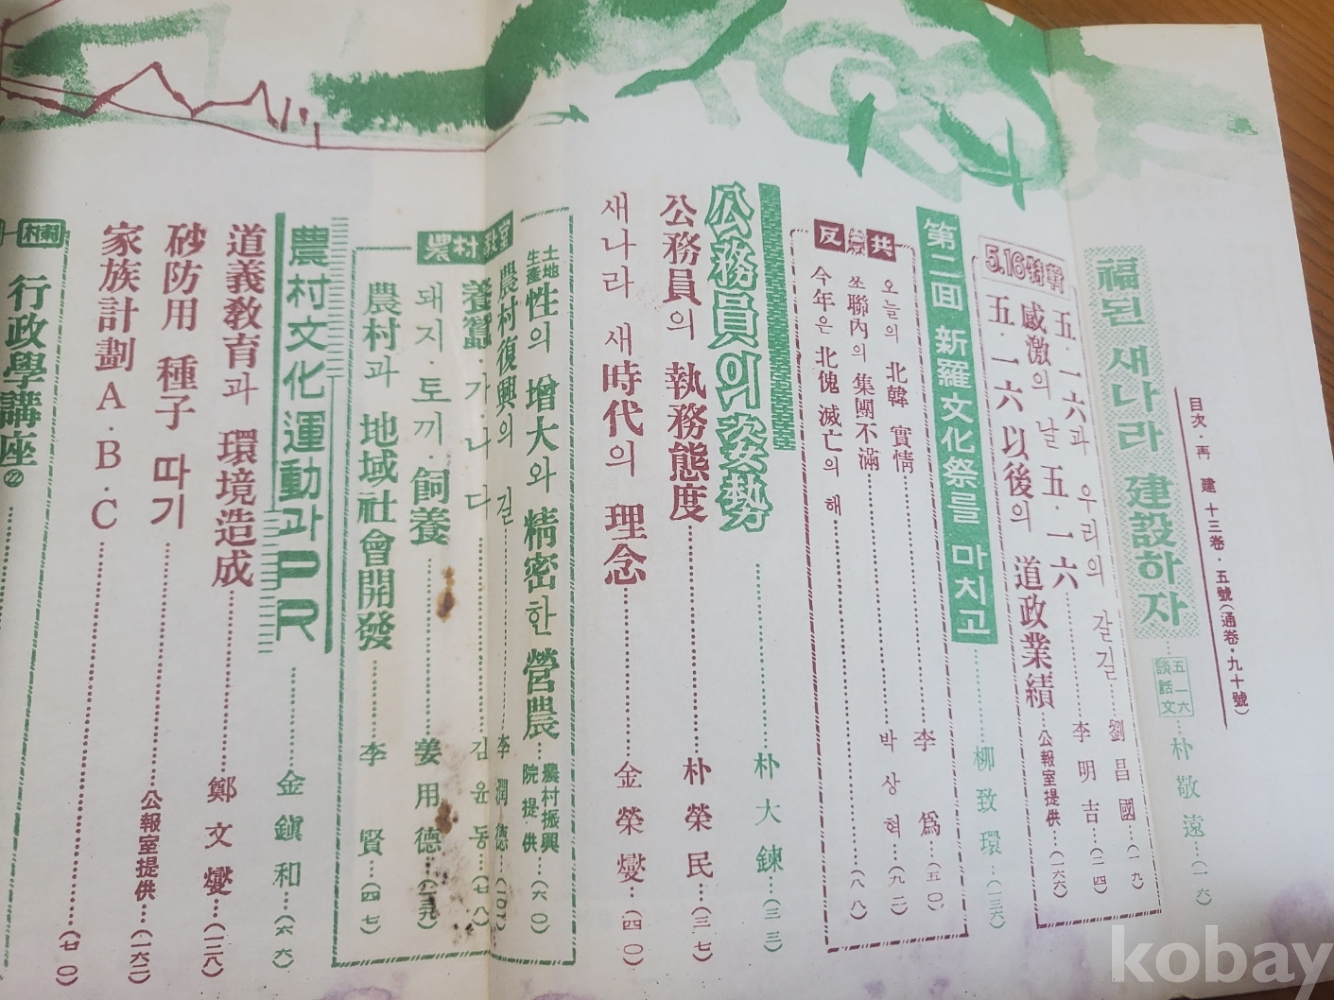 目次·再建 十三卷·五號(通卷·九十號)
福된 새나라 建設하자 五一六談話文 朴敬遠…(一六)
5.16特輯
五·一六과 우리의 갈길 劉昌國…(一九)
感激의 날 五·一六 李明吉…(二四)
五·一六 以後의 道政業績 公報室提供…(一六六)
第二回 新羅文化祭를 마치고 柳致環…(一三六)
反共
오늘의 北韓 實情 李爲…(五〇)
쏘聯內의 集團不滿 박상혁…(九二)
今年은 北傀 滅亡의 해 (八八)
公務員의 姿勢 朴大鍊…(三三)
公務員의 執務態度 朴榮民…(三七)
새나라 새時代의 理念 金榮燮…(四〇)
農村敎室
土地生産性의 增大와 精密한 營農 農村振興院提供…(六〇)
農村復興의 길 李潤德…(一〇一)
養鷄·가나다 김윤동…(七八)
돼지·토끼·飼養 姜用德
農村과 地域社會開發 李賢…(四七)
農村文化運動과 PR 金鎭和…(六六)
道義敎育과 環境造成 鄭文燮…(一二八)
砂防用 種子 따기 公報室提供…(一六二)
家族計劃 A·B·C (七〇)
行政學講座㉒
kobay